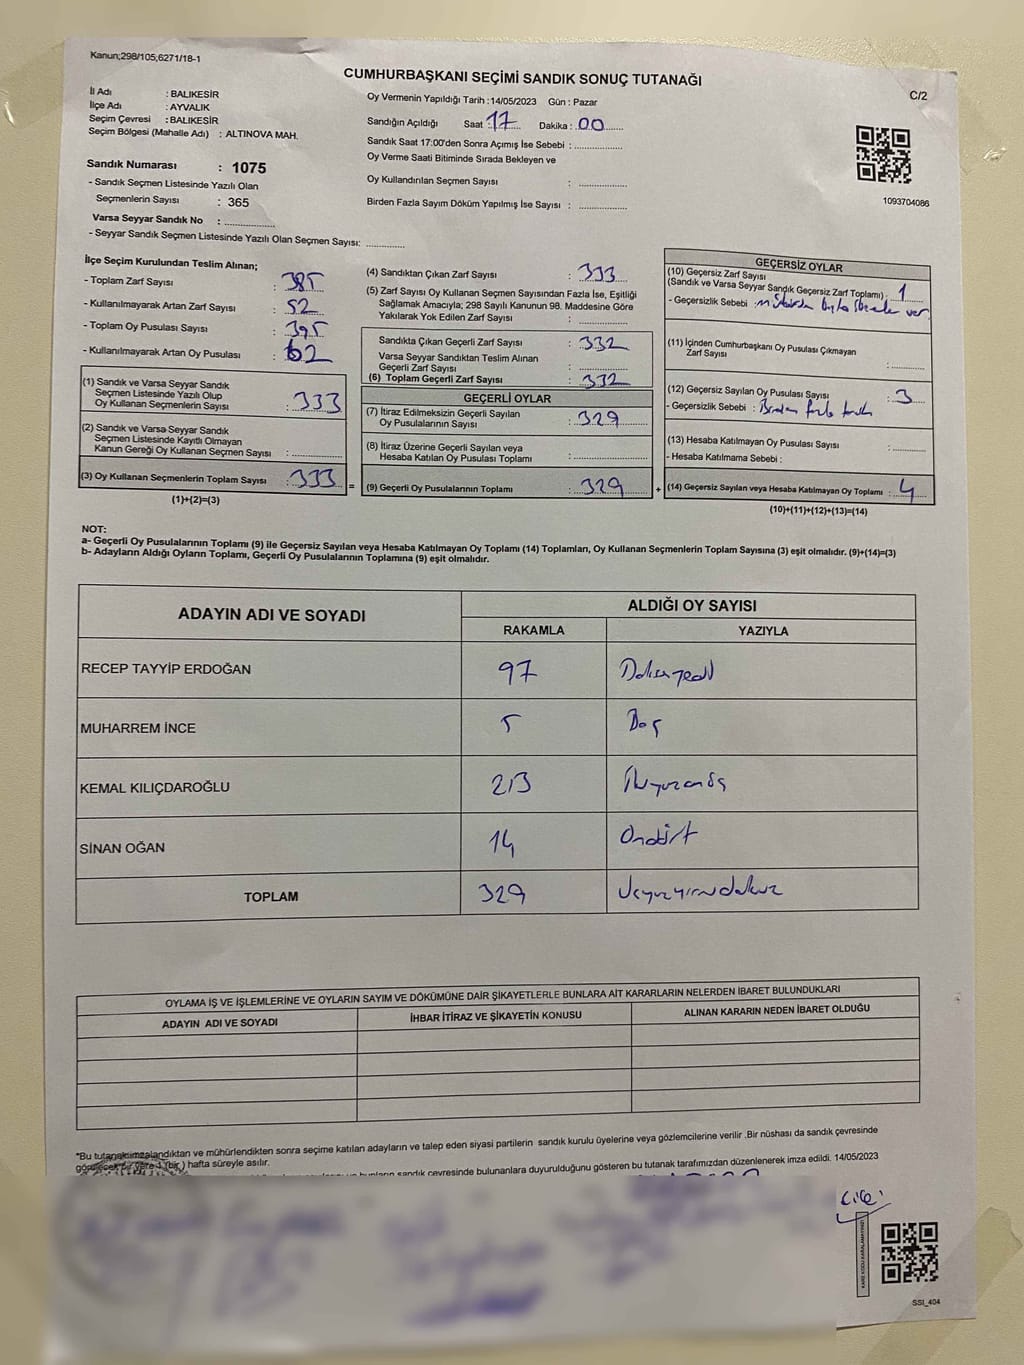 Kanun;298/105;6271/18-1
CUMHURBAŞKANI SEÇİMİ SANDIK SONUÇ TUTANAĞI
C/2
İl Adı : BALIKESİR
İlçe Adı : AYVALIK
Seçim Çevresi : BALIKESİR
Seçim Bölgesi (Mahalle Adı) : ALTINOVA MAH.
Sandık Numarası : 1075
- Sandık Seçmen Listesinde Yazılı Olan
Seçmenlerin Sayısı : 365
Varsa Seyyar Sandık No :
- Seyyar Sandık Seçmen Listesinde Yazılı Olan Seçmen Sayısı:
Oy Vermenin Yapıldığı Tarih :14/05/2023 Gün : Pazar
Sandığın Açıldığı Saat : 17 Dakika : 00
Sandık Saat 17:00'den Sonra Açımış İse Sebebi :
Oy Verme Saati Bitiminde Sırada Bekleyen ve
Oy Kullandırılan Seçmen Sayısı :
Birden Fazla Sayım Döküm Yapılmış İse Sayısı :
1093704086
İlçe Seçim Kurulundan Teslim Alınan;
- Toplam Zarf Sayısı : 385
- Kullanılmayarak Artan Zarf Sayısı : 52
- Toplam Oy Pusulası Sayısı : 395
- Kullanılmayarak Artan Oy Pusulası : 62
(1) Sandık ve Varsa Seyyar Sandık
Seçmen Listesinde Yazılı Olup
Oy Kullanan Seçmenlerin Sayısı : 333
(2) Sandık ve Varsa Seyyar Sandık
Seçmen Listesinde Kayıtlı Olmayan
Kanun Gereği Oy Kullanan Seçmen Sayısı :
(3) Oy Kullanan Seçmenlerin Toplam Sayısı : 333 =
(1)+(2)=(3)
(4) Sandıktan Çıkan Zarf Sayısı : 333
(5) Zarf Sayısı Oy Kullanan Seçmen Sayısından Fazla İse, Eşitliği
Sağlamak Amacıyla; 298 Sayılı Kanunun 98. Maddesine Göre
Yakılarak Yok Edilen Zarf Sayısı :
Sandıkta Çıkan Geçerli Zarf Sayısı : 332
Varsa Seyyar Sandıktan Teslim Alınan
Geçerli Zarf Sayısı :
(6) Toplam Geçerli Zarf Sayısı : 332
GEÇERLİ OYLAR
(7) İtiraz Edilmeksizin Geçerli Sayılan
Oy Pusulalarının Sayısı : 329
(8) İtiraz Üzerine Geçerli Sayılan veya
Hesaba Katılan Oy Pusulası Toplamı :
(9) Geçerli Oy Pusulalarının Toplamı : 329 +
GEÇERSİZ OYLAR
(10) Geçersiz Zarf Sayısı
(Sandık ve Varsa Seyyar Sandık Geçersiz Zarf Toplamı) : 1
- Geçersizlik Sebebi :
(11) İçinden Cumhurbaşkanı Oy Pusulası Çıkmayan
Zarf Sayısı :
(12) Geçersiz Sayılan Oy Pusulası Sayısı : 3
- Geçersizlik Sebebi : Birden fazla
(13) Hesaba Katılmayan Oy Pusulası Sayısı :
- Hesaba Katılmama Sebebi :
(14) Geçersiz Sayılan veya Hesaba Katılmayan Oy Toplamı : 4
(10)+(11)+(12)+(13)=(14)
NOT:
a- Geçerli Oy Pusulalarının Toplamı (9) ile Geçersiz Sayılan veya Hesaba Katılmayan Oy Toplamı (14) Toplamları, Oy Kullanan Seçmenlerin Toplam Sayısına (3) eşit olmalıdır. (9)+(14)=(3)
b- Adayların Aldığı Oyların Toplamı, Geçerli Oy Pusulalarının Toplamına (9) eşit olmalıdır.
ADAYIN ADI VE SOYADI
ALDIĞI OY SAYISI
RAKAMLA YAZIYLA
RECEP TAYYİP ERDOĞAN 97 Doksanyedi
MUHARREM İNCE 5 Beş
KEMAL KILIÇDAROĞLU 213 İkiyüzonüç
SİNAN OĞAN 14 Ondört
TOPLAM 329 Üçyüzyirmidokuz
OYLAMA İŞ VE İŞLEMLERİNE VE OYLARIN SAYIM VE DÖKÜMÜNE DAİR ŞİKAYETLERLE BUNLARA AİT KARARLARIN NELERDEN İBARET BULUNDUKLARI
ADAYIN ADI VE SOYADI İHBAR İTİRAZ VE ŞİKAYETİN KONUSU ALINAN KARARIN NEDEN İBARET OLDUĞU
*Bu tutanak imzalandıktan ve mühürlendikten sonra seçime katılan adayların ve talep eden siyasi partilerin sandık kurulu üyelerine veya gözlemcilerine verilir .Bir nüshası da sandık çevresinde
görülecek bir yere 1 (bir ) hafta süreyle asılır.
bunların sandık çevresinde bulunanlara duyurulduğunu gösteren bu tutanak tarafımızdan düzenlenerek imza edildi. 14/05/2023
KARE KODU KARALAMAYINIZ!
SSI_404